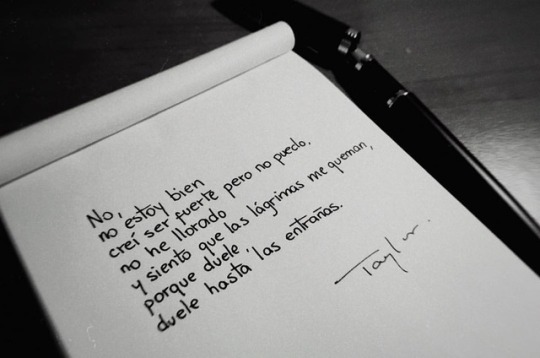 No,
no estoy bien
creí ser fuerte pero no puedo.
no he llorado
y siento que las lágrimas me queman,
porque duele,
duele hasta las entrañas.
Taylor.